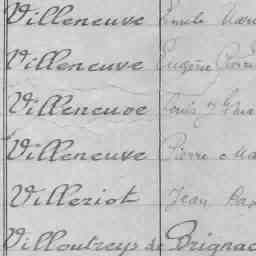 Villeneuve Emile
Villeneuve Eugène
Villeneuve Louis
Villeneuve Pierre Ma
Villeriot Jean
Villoutreys de Brignac